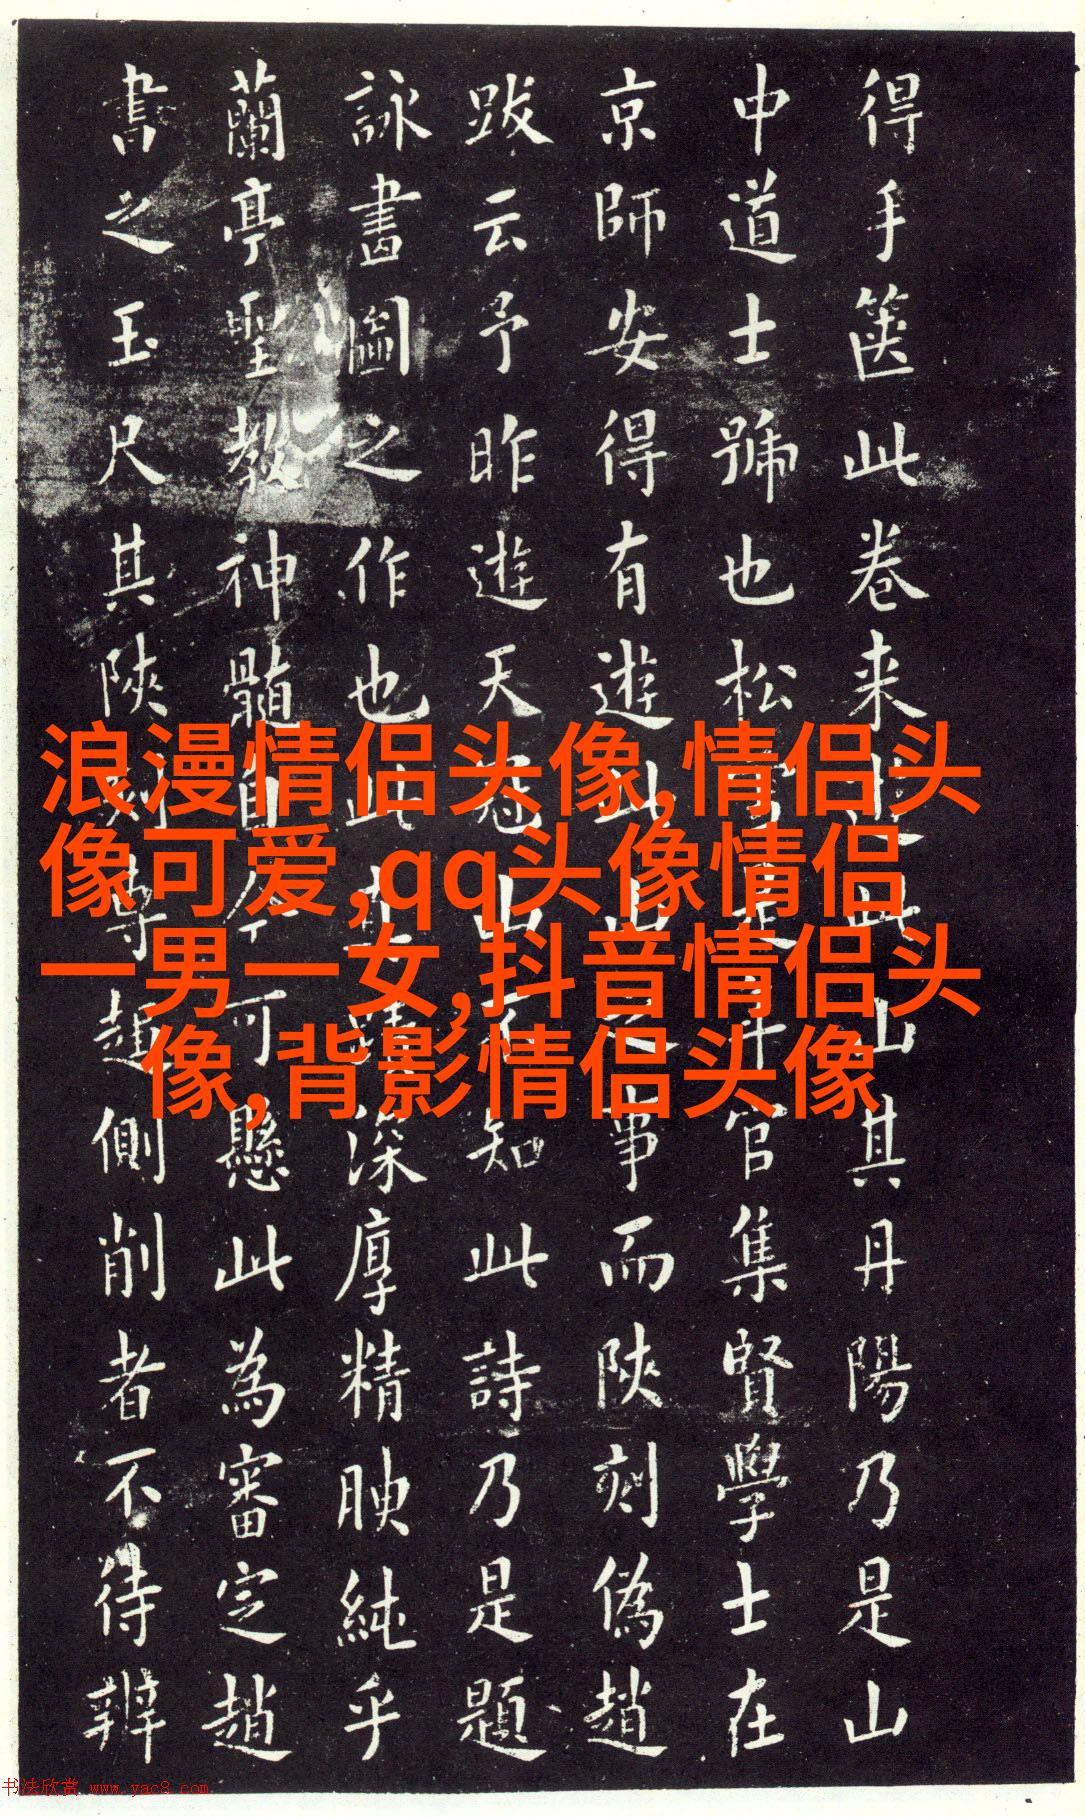 得手篋此卷来此山其丹陽乃是山
中道士號也松雪是年官集賢學士在
京師安得有遊此山之事而陝刻偽趙
跋云予昨遊天冠山不知此詩乃是題
詠畵圖之作也此蹟深厚精腴純乎
蘭亭聖教神髓自今可懸此為審定趙
書之玉尺其陝刻專趨側削者不待辨
浪漫情侣头像,情侣头
像可爱,qq头像情侣
一男一女,抖音情侣头
像,背影情侣头像
书法欣赏 www.yac8.com